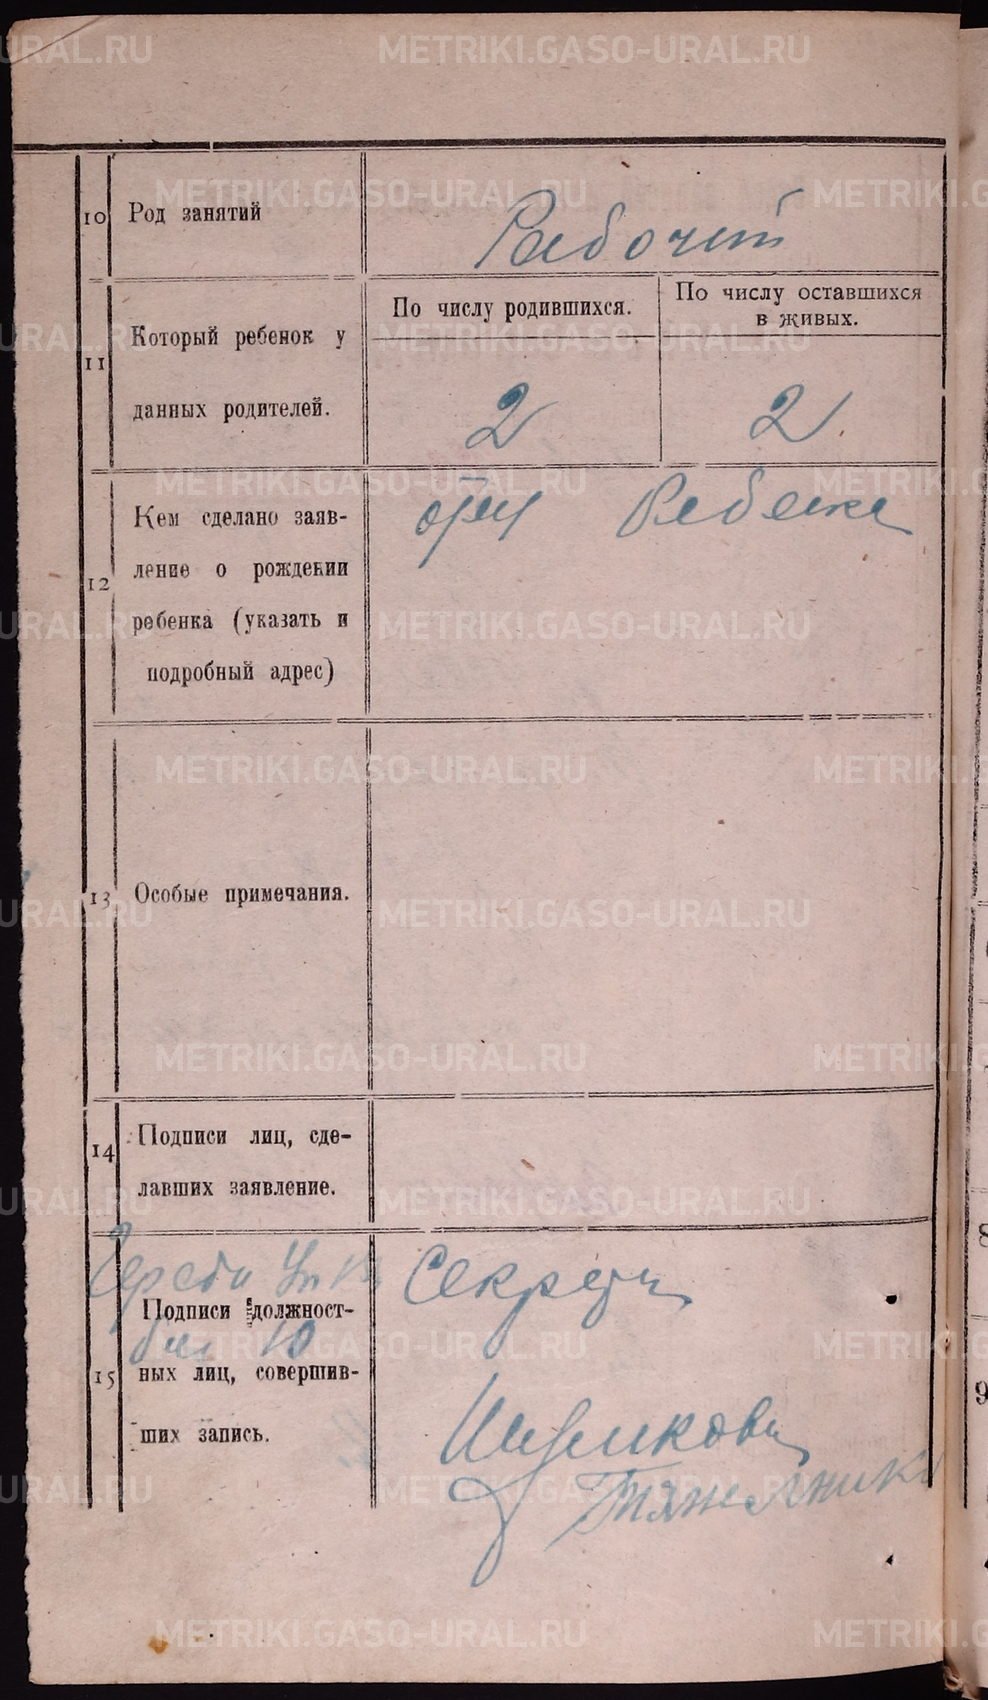 METRIKI.GASO-URAL.RU
10 Род занятий
Рабочий
11 Который ребенок у
данных родителей.
По числу родившихся.
По числу оставшихся
в живых.
2
2
12 Кем сделано заяв-
ление о рождении
ребенка (указать и
подробный адрес)
отец Ребенка
13 Особые примечания.
14 Подписи лиц, сде-
лавших заявление.
15 Подписи должност-
ных лиц, совершив-
ших запись.
Секрет
8
9